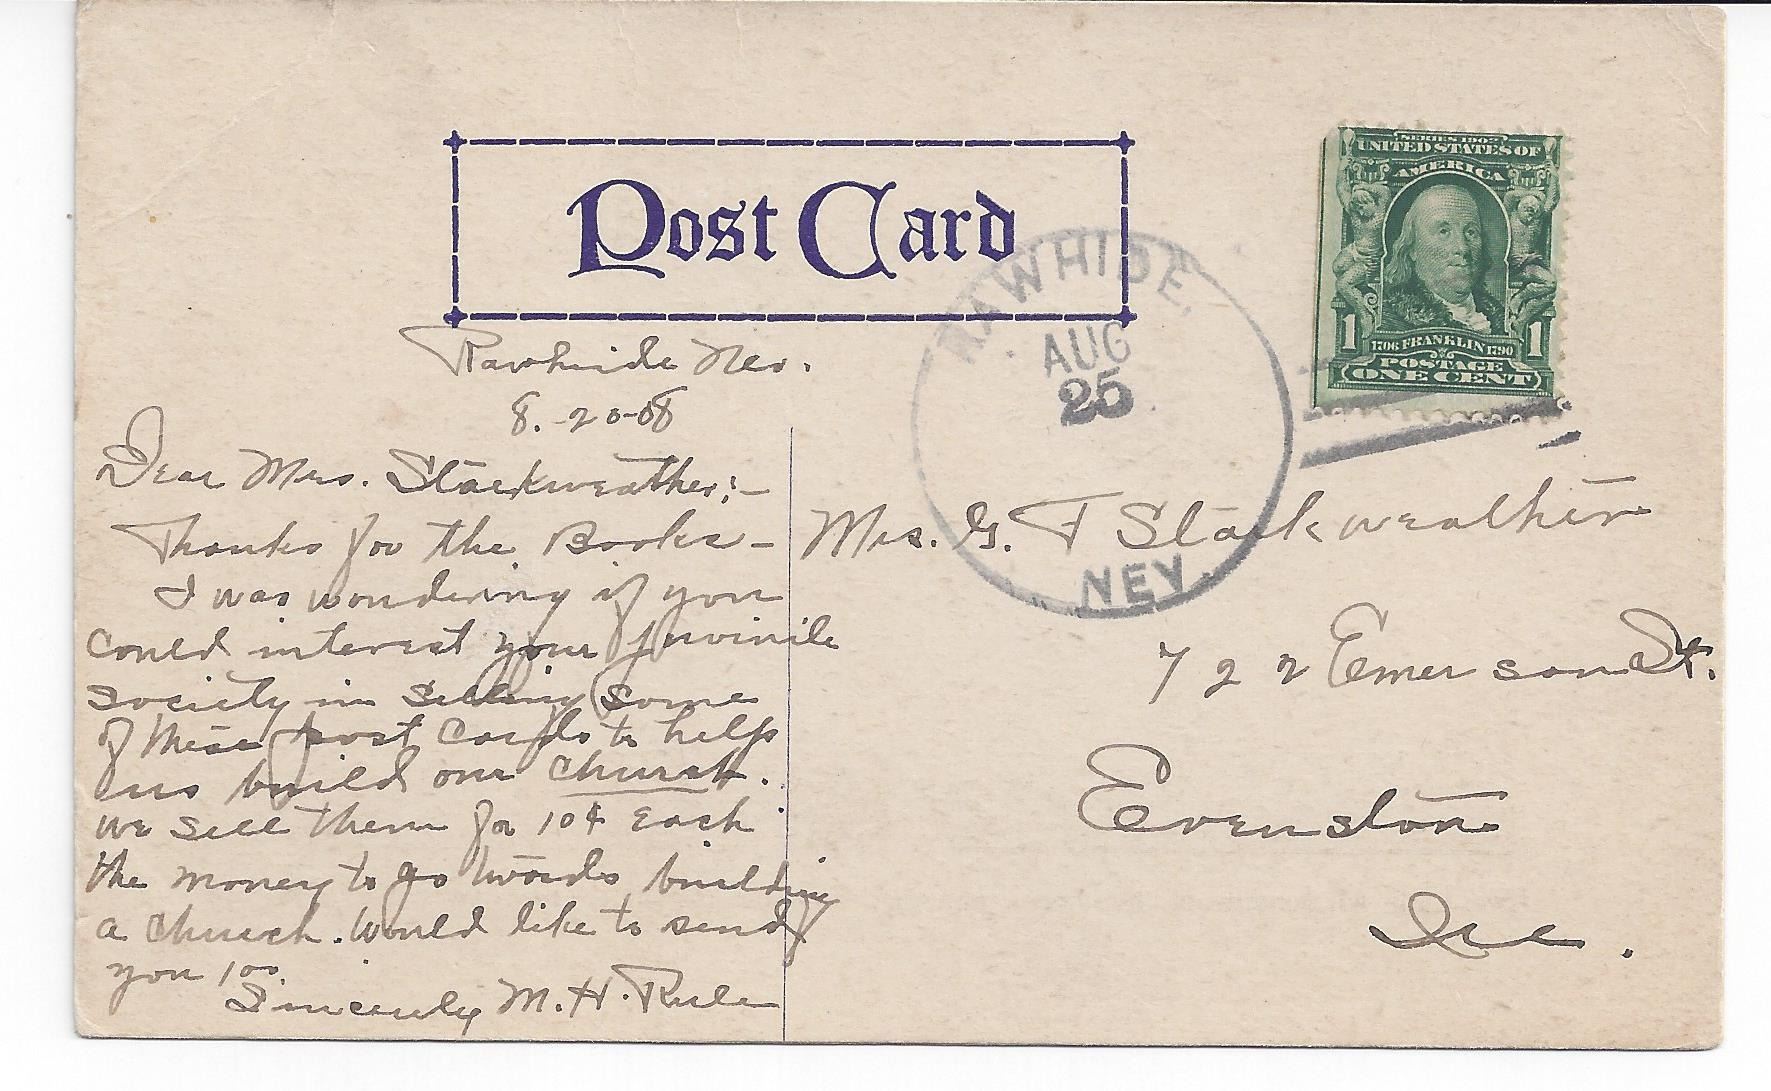 Post Card
SERIES 1902
UNITED STATES OF
AMERICA
1 1
1706 FRANKLIN 1790
POSTAGE
ONE CENT
RAWHIDE,
AUG
25
NEV.
Rawhide Nev.
8.-20-08
Dear Mrs. Starkweather:-
Thanks for the Books -
I was wondering if you
could interest your juvinile
society in selling some
of these post cards to help
us build our church.
we sell them for 10¢ each
the money to go twords building
a church. Would like to send
you 100
Sincerely M. H. Rule
Mrs. G. T Starkweather
722 Emerson St.
Evenston
Ill.